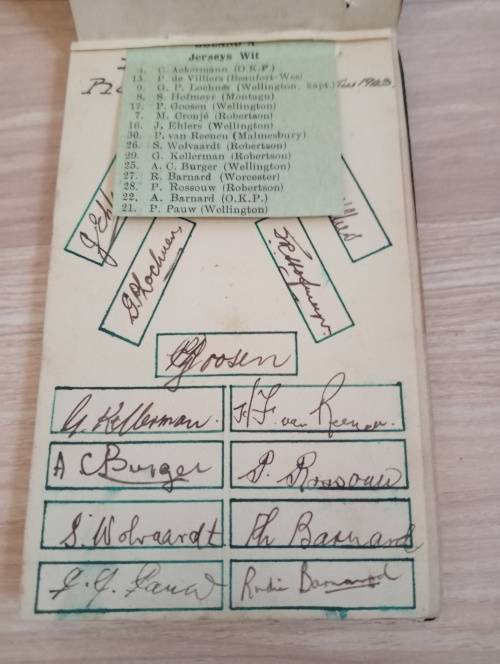 BOLAND A
Jerseys Wit
4. C. Ackermann (O.K.P.)
15. P. de Villiers (Beaufort-Wes)
9. G. P. Lochner (Wellington, kapt.)
8. S. Hofmeyr (Montagu)
17. P. Goosen (Wellington)
7. M. Cronjé (Robertson)
16. J. Ehlers (Wellington)
30. P. van Reenen (Malmesbury)
26. S. Wolvaardt (Robertson)
29. G. Kellerman (Robertson)
25. A. C. Burger (Wellington)
27. R. Barnard (Worcester)
28. P. Rossouw (Robertson)
22. A. Barnard (O.K.P.)
21. P. Pauw (Wellington)
J Ehl
G P Lochner
Hofmeyr
P Goosen
G. Kellerman.
van Reenen.
A C Burger
P. Rossouw
S. Wolvaardt
Barnard
Pauw
Barnard